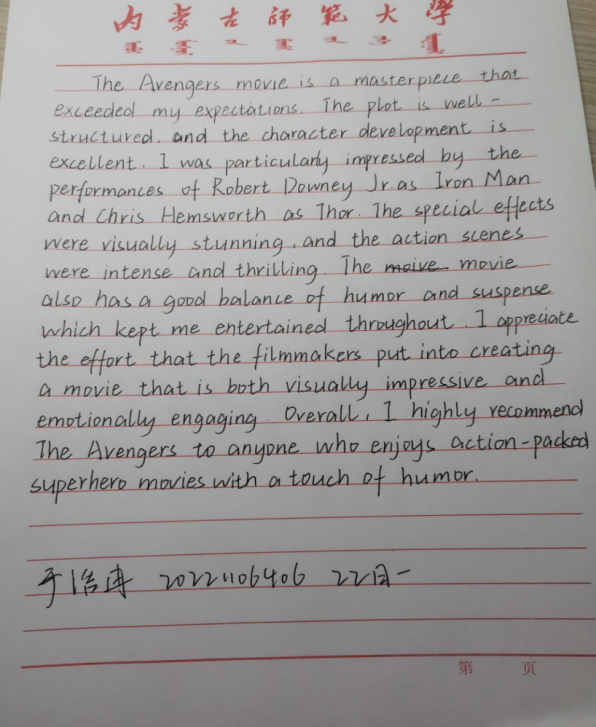 内蒙古師範大學
The Avengers movie is a masterpiece that
exceeded my expectations. The plot is well-
structured, and the character development is
excellent. I was particularly impressed by the
performances of Robert Downey Jr. as Iron Man
and Chris Hemsworth as Thor. The special effects
were visually stunning, and the action scenes
were intense and thrilling. The moive movie
also has a good balance of humor and suspense
which kept me entertained throughout. I appreciate
the effort that the filmmakers put into creating
a movie that is both visually impressive and
emotionally engaging. Overall, I highly recommend
The Avengers to anyone who enjoys action-packed
superhero movies with a touch of humor.
于 20221106406 22日一
第 页